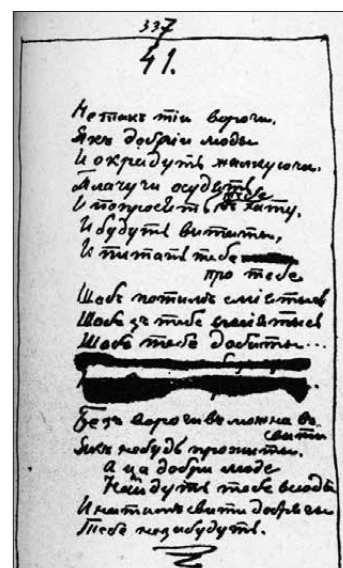 337
41.
Не такъ тіи вороги,
Якъ добріи люды
И окрадутъ жалкуючи.
Плачучи осудятъ
И попросятъ тебе въ хату,
И будутъ витаты,
И питать тебе
про тебе
Щобъ потимъ сміятысь
Щобъ зъ тебе сміятысь
Щобъ тебе добиты...
Безъ ворогивъ можна въ
свити
Якъ небудь прожыты.
А ца добри люде
Найдутъ тебе всюды
И на тимъ свити добряги
Тебе не забудутъ.